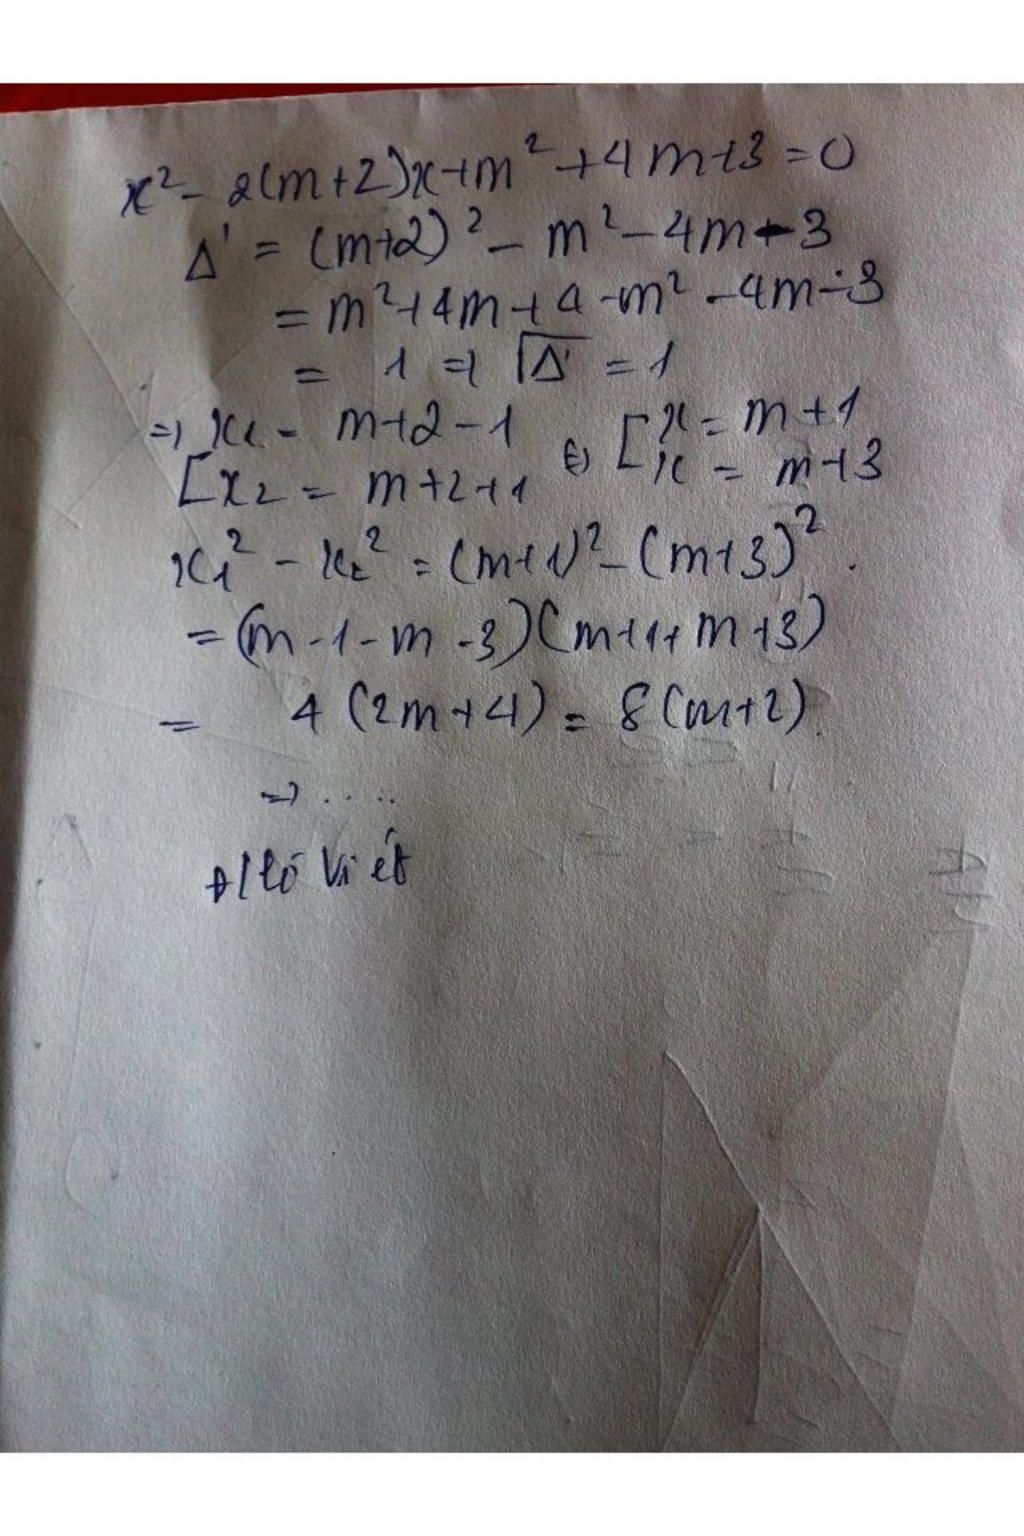 x² - 2(m+2)x+m² +4m+3 = 0
Δ' = (m+2)² - m² - 4m - 3
= m²+4m+4 -m² -4m-3
= 1 => √Δ' = 1
=> x₁ = m+2-1 (=) [x = m+1
[x₂ = m+2+1 x = m+3
x₁² - x₂² = (m+1)² - (m+3)².
= (m-1-m-3)(m+1+m+3)
= 4(2m+4) = 8(m+2).
=> .....
Viét